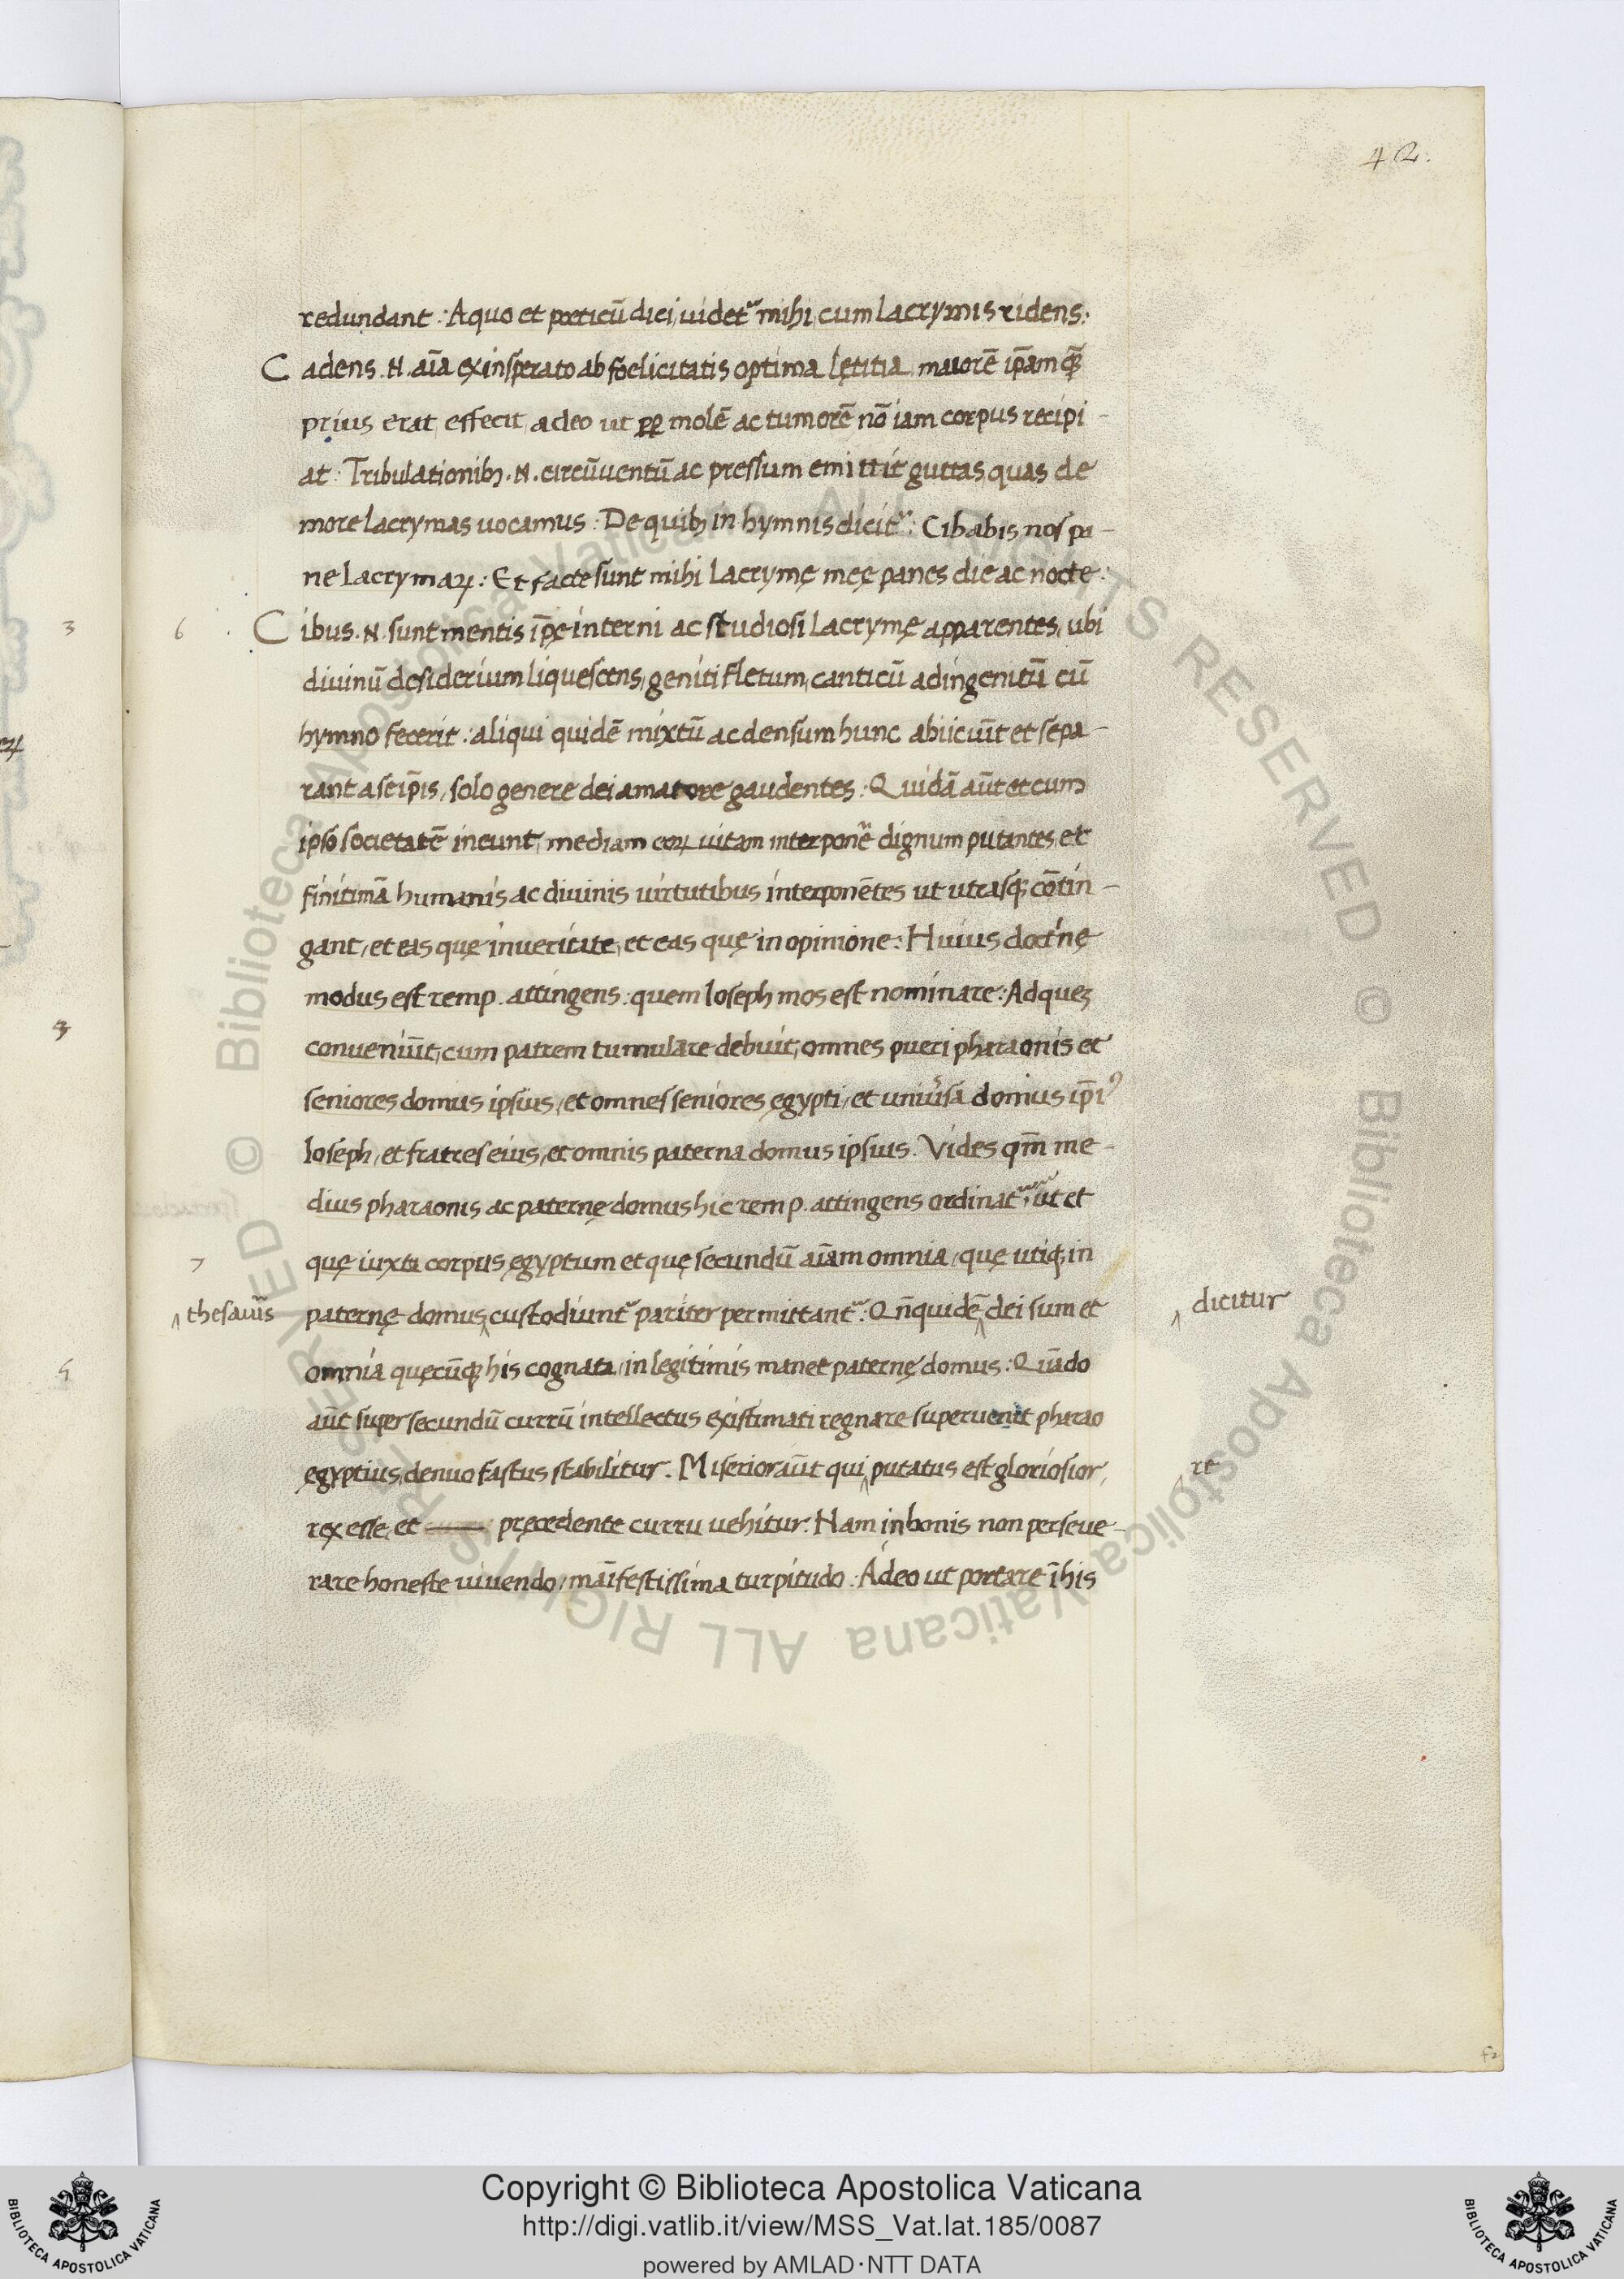 42.
redundant : A quo et poeticū dici uidet᷑ mihi cum lacrymis ridens :
Cadens .N. aīa ex insperato ab foelicitatis optima lętitia maiorē ip̄am qꝫ̄
prius erat effecit, adeo ut ꝓp̄ molē ac tumorē nō iam corpus recipi-
at : Tribulationibꝫ .N. circūuentū ac pressum emittit guttas, quas de
more lacrymas uocamus : De quibꝫ in hymnis dicit᷑ : Cibabis nos pa-
ne lacrymaꝝ : Et facte sunt mihi lacrymę meę panes die ac nocte :
3 6 Cibus .N. sunt mentis ip̄ę interni ac studiosi lacrymę apparentes, ubi
diuinū desiderium liquescens, geniti fletum, canticū ad ingenitū cū
hymno fecerit : aliqui quidē mixtū ac densum hunc abiiciūt et sepa-
rant a seip̄is, solo genere dei amatore gaudentes : Quidā aūt et cum
ipso societatē ineunt, mediam eoꝝ uitam interponē dignum putantes, et
finitimā humanis ac diuinis uirtutibus interponētes ut utrasqꝫ cōtin-
gant, et eas quę in ueritate, et eas quę in opinione : Huius doct'nę
modus est remp. attingens : quem Ioseph mos est nominare : Ad queꝫ
conueniūt, cum patrem tumulare debuit, omnes pueri pharaonis et
seniores domus ipsius, et omnes seniores ęgypti, et uniũsa domus ip̄iꝰ
Ioseph, et fratres eius, et omnis paterna domus ipsius. Vides qm̄ me-
dius pharaonis ac paternę domus hic remp. attingens ordinat᷑, ut et
7 quę iuxta corpus ęgyptum et quę secundū aīam omnia, quę utiqꝫ in
^ thesauūs paternę domus ^ custodiunt᷑ pariter permittant᷑ : Qn̄quidē ^ dei sum et ^ dicitur
omnia quęcūqꝫ his cognata, in legitimis manet paternę domus : Quādo
aūt super secundū currū intellectus existimati regnare superuenit pharao
ęgyptius, denuo fastus stabilitur. Miserior aūt qui ^ putatus est gloriosior, ^ re
rex esse, et pręcedente curru uehitur. Nam in bonis non perseue-
rare honeste uiuendo, māifestissima turpitudo : Adeo ut portare ī his
f2
Copyright © Biblioteca Apostolica Vaticana
http://digi.vatlib.it/view/MSS_Vat.lat.185/0087
powered by AMLAD·NTT DATA
BIBLIOTECA APOSTOLICA VATICANA
BIBLIOTECA APOSTOLICA VATICANA
© Biblioteca Apostolica Vaticana ALL RIGHTS RESERVED © Biblioteca Apostolica Vaticana ALL RIGHTS RESERVED